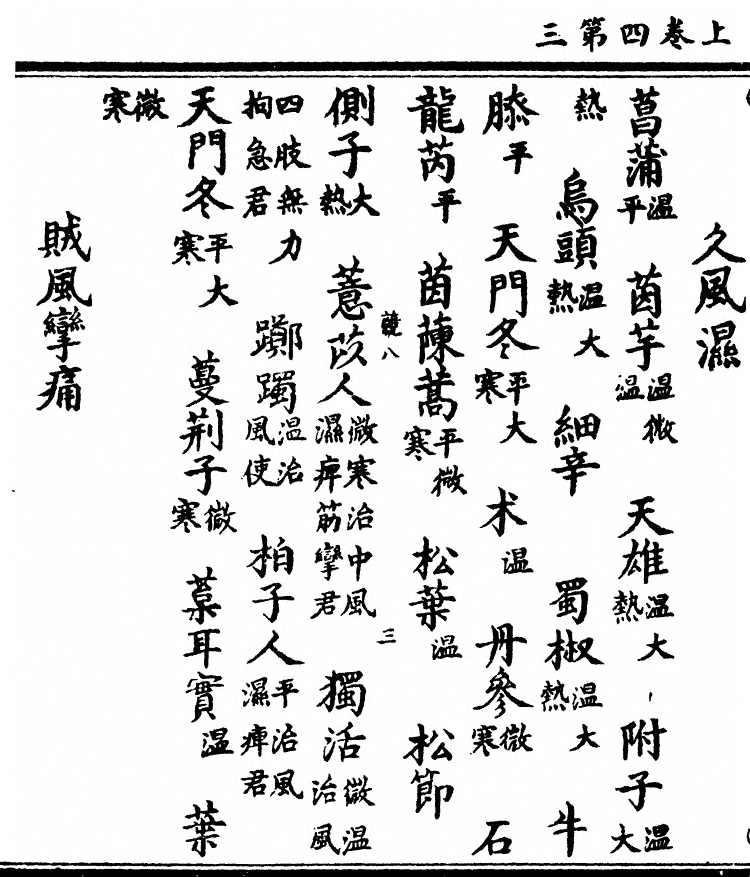 上卷四第三
久風濕
菖蒲溫平 茵芋溫微溫 天雄溫大熱 附子溫大
熱 烏頭溫大熱 細辛 蜀椒溫大熱 牛
膝平 天門冬平大寒 术溫 丹參微寒 石
龍芮平 茵蔯蒿平微寒 松葉溫 松節
八 三
側子大熱 薏苡人微寒治中風濕痺筋攣君 獨活微溫治風
四肢無力拘急君 躑躅溫治風使 柏子人平治風濕痺君
天門冬平大寒 蔓荆子微寒 葈耳實溫 葉
微寒
賊風攣痛